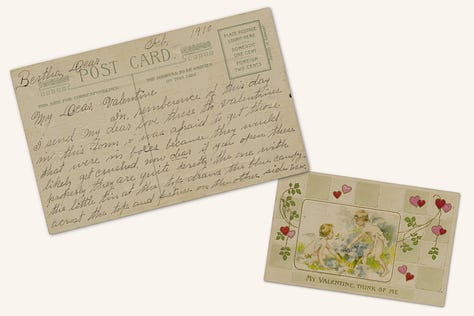 Feb. 1910
Bertha, Dear
POST CARD.
PLACE POSTAGE
STAMP HERE
DOMESTIC
ONE CENT
FOREIGN
TWO CENTS
THE ADDRESS TO BE WRITTEN
FOR CORRESPONDENCE
ON THIS SIDE
My Dear Valentine
In rememberence of this day
I send my dear love these to valentines
in this form I was afraid to get those
that were in boxes because they would
likely get crushed, now dear if you open these
properly they are quite pretty the one with
the little tin at the top draws the blue
across the top and picture on the other side
MY VALENTINE, THINK OF ME